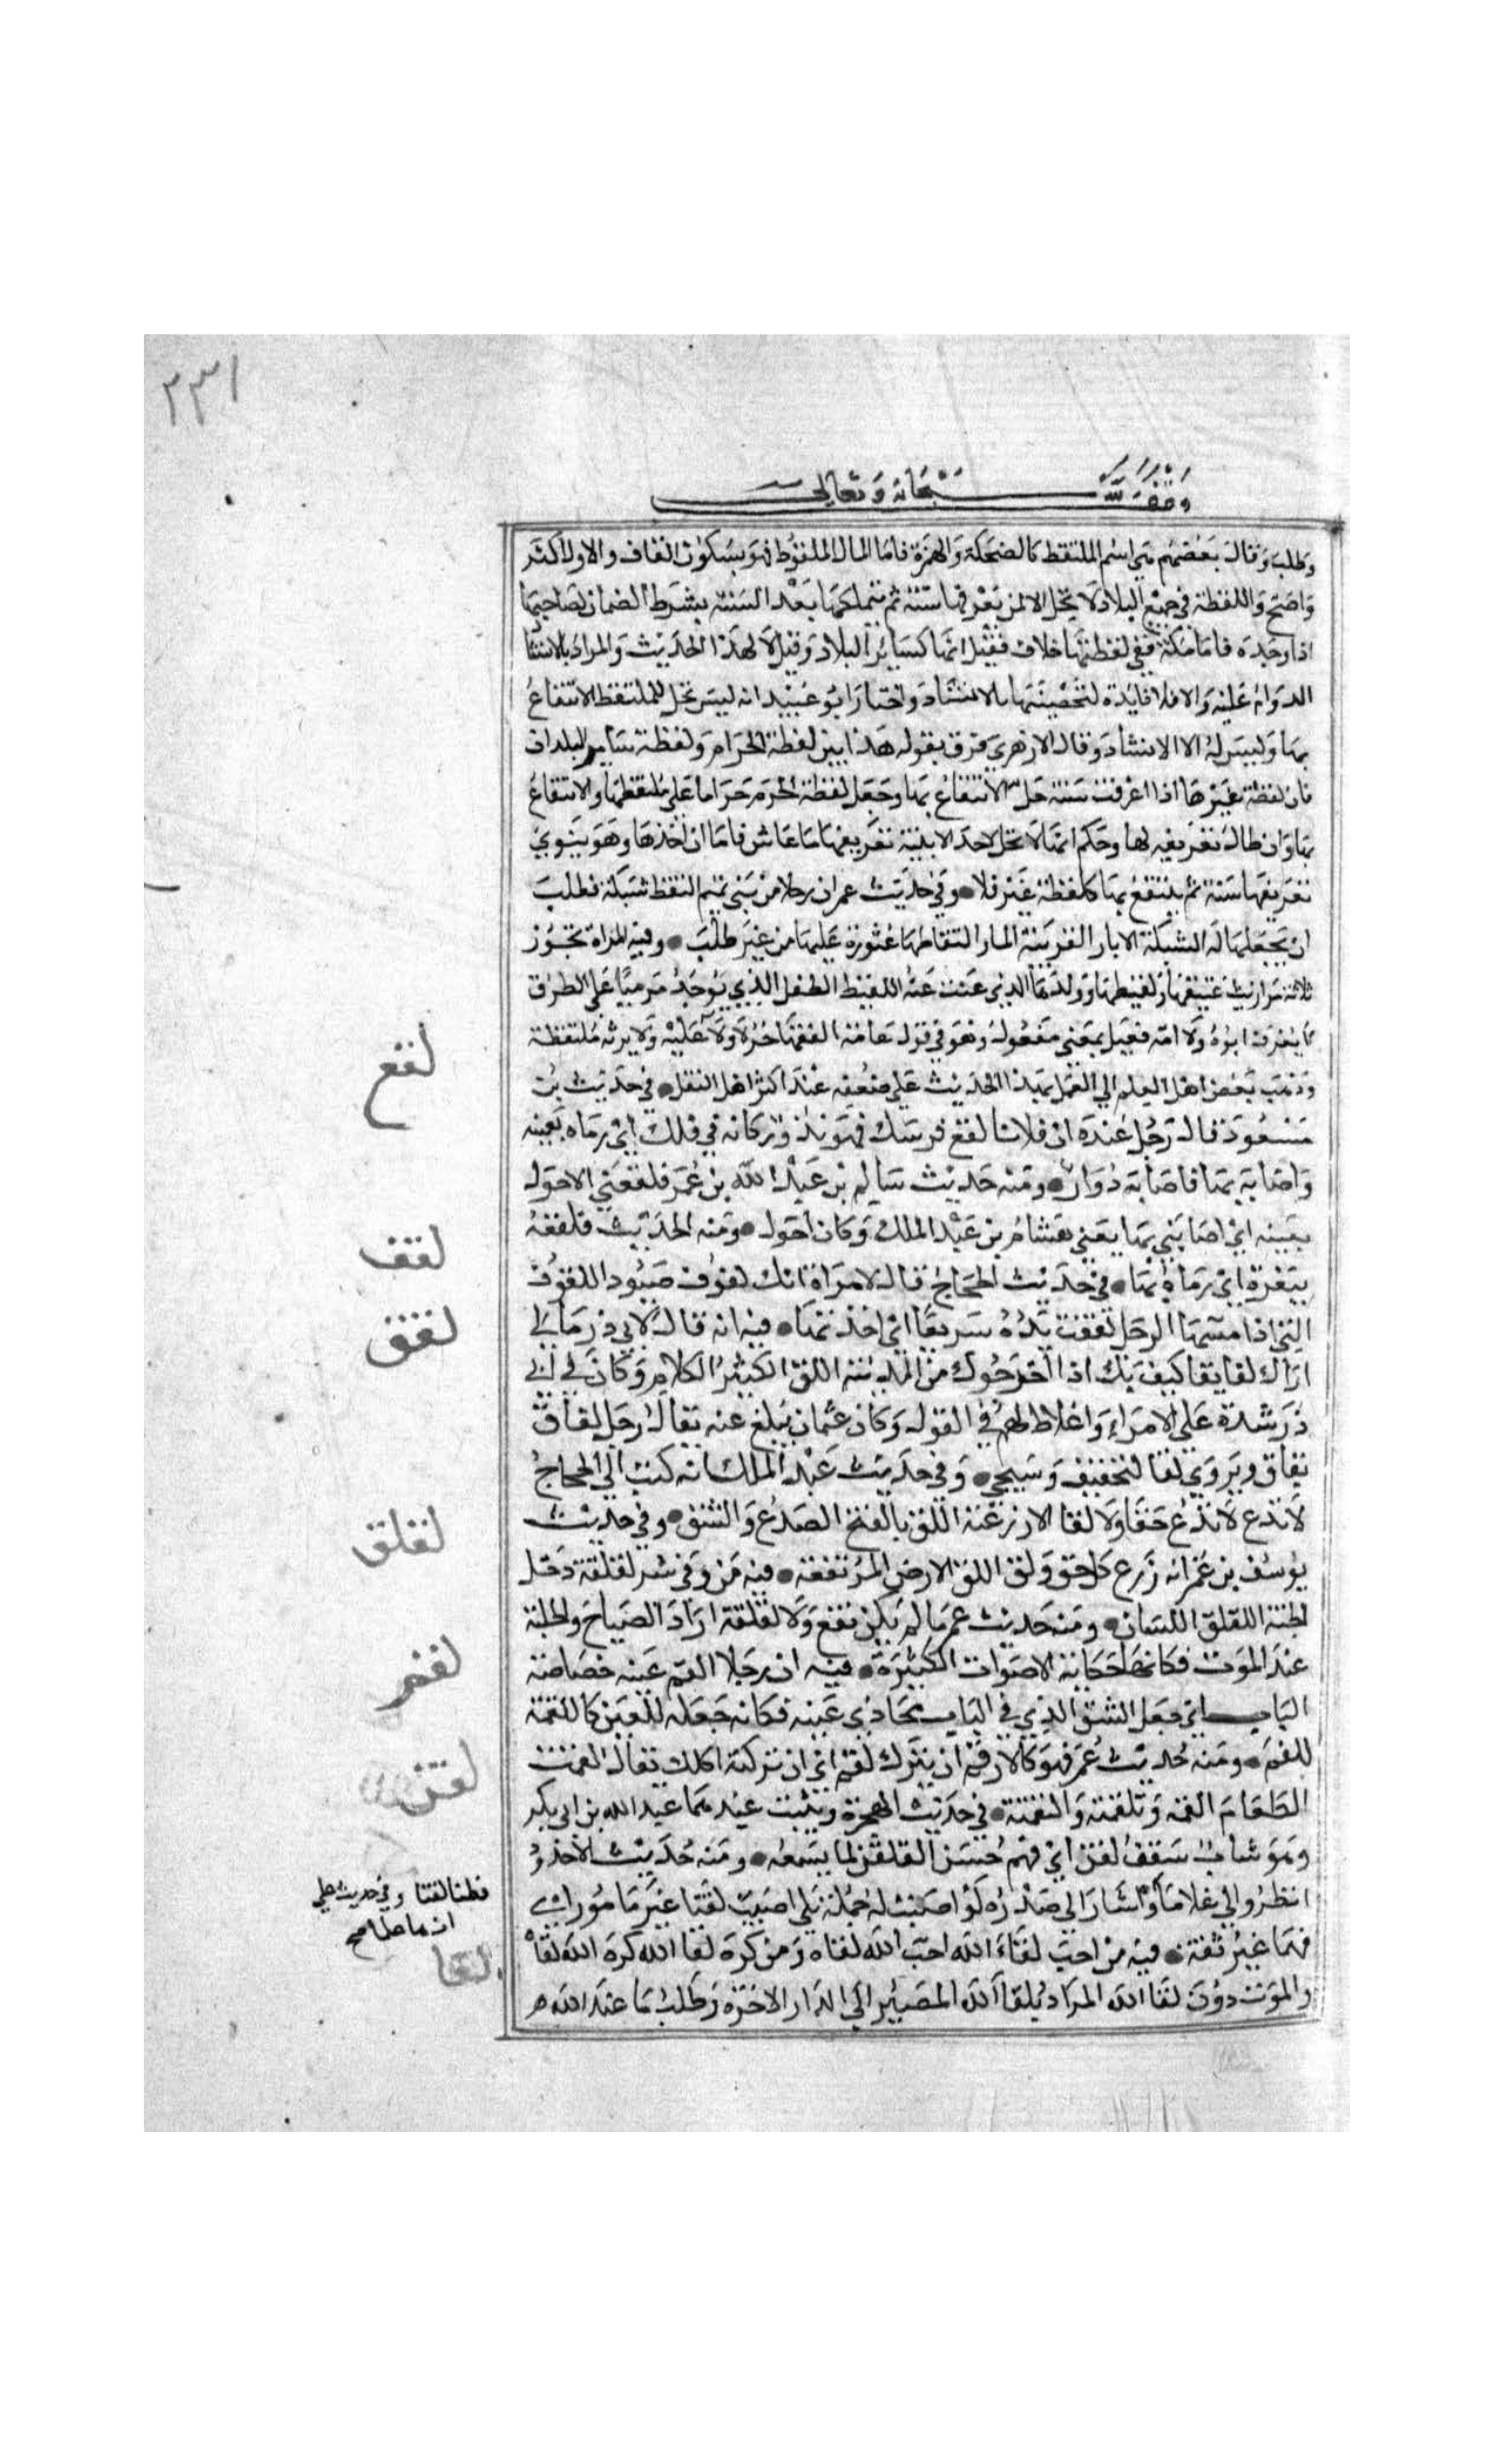 ٢٣١
وقف لله سبحانه وتعالى
وطلب وقال بعضهم هي اسم الملتقط كالضحكة والهمزة فاما المال الملقوط فهو بسكون القاف والاول اكثر
واصح واللقطة في جميع البلاد لا تحل الا لمن يعرفها سنة ثم يتملكها بعد السنة بشرط الضمان لصاحبها
اذا وجده فاما مكة ففي لقطتها خلاف فقيل انها كسائر البلاد وقيل لا لهذا الحديث والمراد بالانشا
الدوام عليه والا فلا فايدة لتخصيصها بالانشاد واختار ابو عبيد انه ليس تحل للملتقط الانتفاع
بها وليس له الا الانشاد وقال الازهري فرق بقوله هذا بين لقطة الحرم ولقطة سائر البلدان
فان لقطة غيرها اذا عرفت سنة حل الانتفاع بها وجعل لقطة الحرم حراما على ملتقطها والانتفاع
بها وان طال تعريفه لها وحكم انها لا تحل لاحد الا بنية تعريفها ما عاش فاما ان اخذها وهو ينوي
تعريفها سنة ثم ينتفع بها كلقطة غير فلا وفي حديث عمر ان رجلا من بني تميم التقط شبكة فطلب
ان يجعلها له الشبكة الابار القريبة الما والتقاطها عثوره عليها من غير طلب وفيه المراة تحوز
ثلاثة مواريث عتيقها ولقيطها وولدها الذي عنت عنه اللقيط الطفل الذي يوجد مرميا على الطرق
لا يعرف ابوه ولا امه فعيل بمعنى مفعول وهو في قول عامة الفقها حر لا ولا عليه ولا يرثه ملتقطه
وذهب بعض اهل العلم الي العمل بهذا الحديث على ضعفه عند اكثر اهل النقل في حديث بن
لقع
مسعود قال رجل عنده ان فلانا لقع فرسك فهو يدور كانه في فلك اي رماه بعينه
واصابه بها فاصابه دوار ومنه حديث سالم بن عبد الله بن عمر فلقعني الاحول
بعينه اي اصابني بها يعني هشام بن عبد الملك وكان احول ومنه الحديث فلقعه
لقف
ببعرة اي رماه بها في حديث الحجاج قال لامراة انك لقوف صيود اللقوف
التي اذا مسها الرجل لقفت يده سريعا اي اخذتها فيه انه قال لابي ذر مالي
لقق
اراك لقا بقا كيف بك اذا اخرجوك من المدينة اللق الكثير الكلام وكان في ابي
ذر شدة على الامراء واغلاظ لهم في القول وكان عثمان يبلغ عنه يقال رجل لقاق
بقاق ويروي لقا بالتخفيف وسيجي وفي حديث عبد الملك انه كتب الي الحجاج
لا تدع لا تدع خقا ولا لقا الا زرعته اللق بالفتح الصدع والشق وفي حديث
يوسف بن عمر انه زرع كل حق ولق اللق الارض المرتفعة فيه من وقي شر لقلقه دخل
لقلق
الجنة اللقلق اللسان ومنه حديث عمر ما لم يكن نقع ولا لقلقة اراد الصياح والجلبة
عند الموت فكانها حكاية الاصوات الكثيرة فيه ان رجلا القم عينه خصاصة
لقم
الباب اي جعل الشق الذي في الباب يحاذي عينه فكانه جعله للعين كاللقمة
للفم ومنه حديث عمر فهو كالارقم ان يترك يلقم اي ان تركته اكلك يقال لقمت
الطعام القمه وتلقمته والتقمته في حديث الهجرة ويبيت عندهما عبد الله بن ابي بكر
لقن
وهو شاب ثقف لقن اي فهم حسن التلقن لما يسمعه ومنه حديث الاخدود
انظروا لي غلاما
فطنا لقنا وفي حديث علي
ان هاهنا علما صح
واشار الى صدره لو اصبت له حملة بلى اصيب لقنا غير مامون اي
فهما غير ثقة فيه من احب لقاء الله احب الله لقاه ومن كره لقا الله كره الله لقاه
لقا
والموت دون لقا الله المراد بلقا الله المصير الى الدار الاخرة وطلب ما عند الله